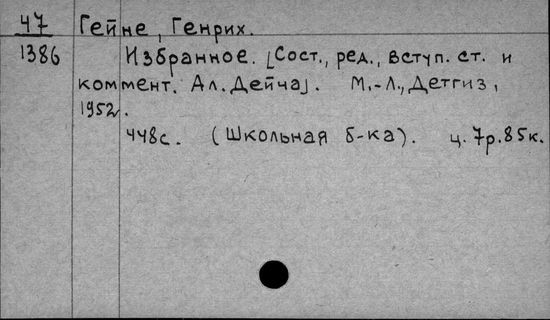 47 Гейне, Генрих.
1386 Избранное. [Сост., ред., вступ. ст. и
коммент. Ал. Дейча]. М.-Л., Детгиз,
1952.
448с. (Школьная б-ка). ц. 7р.85к.